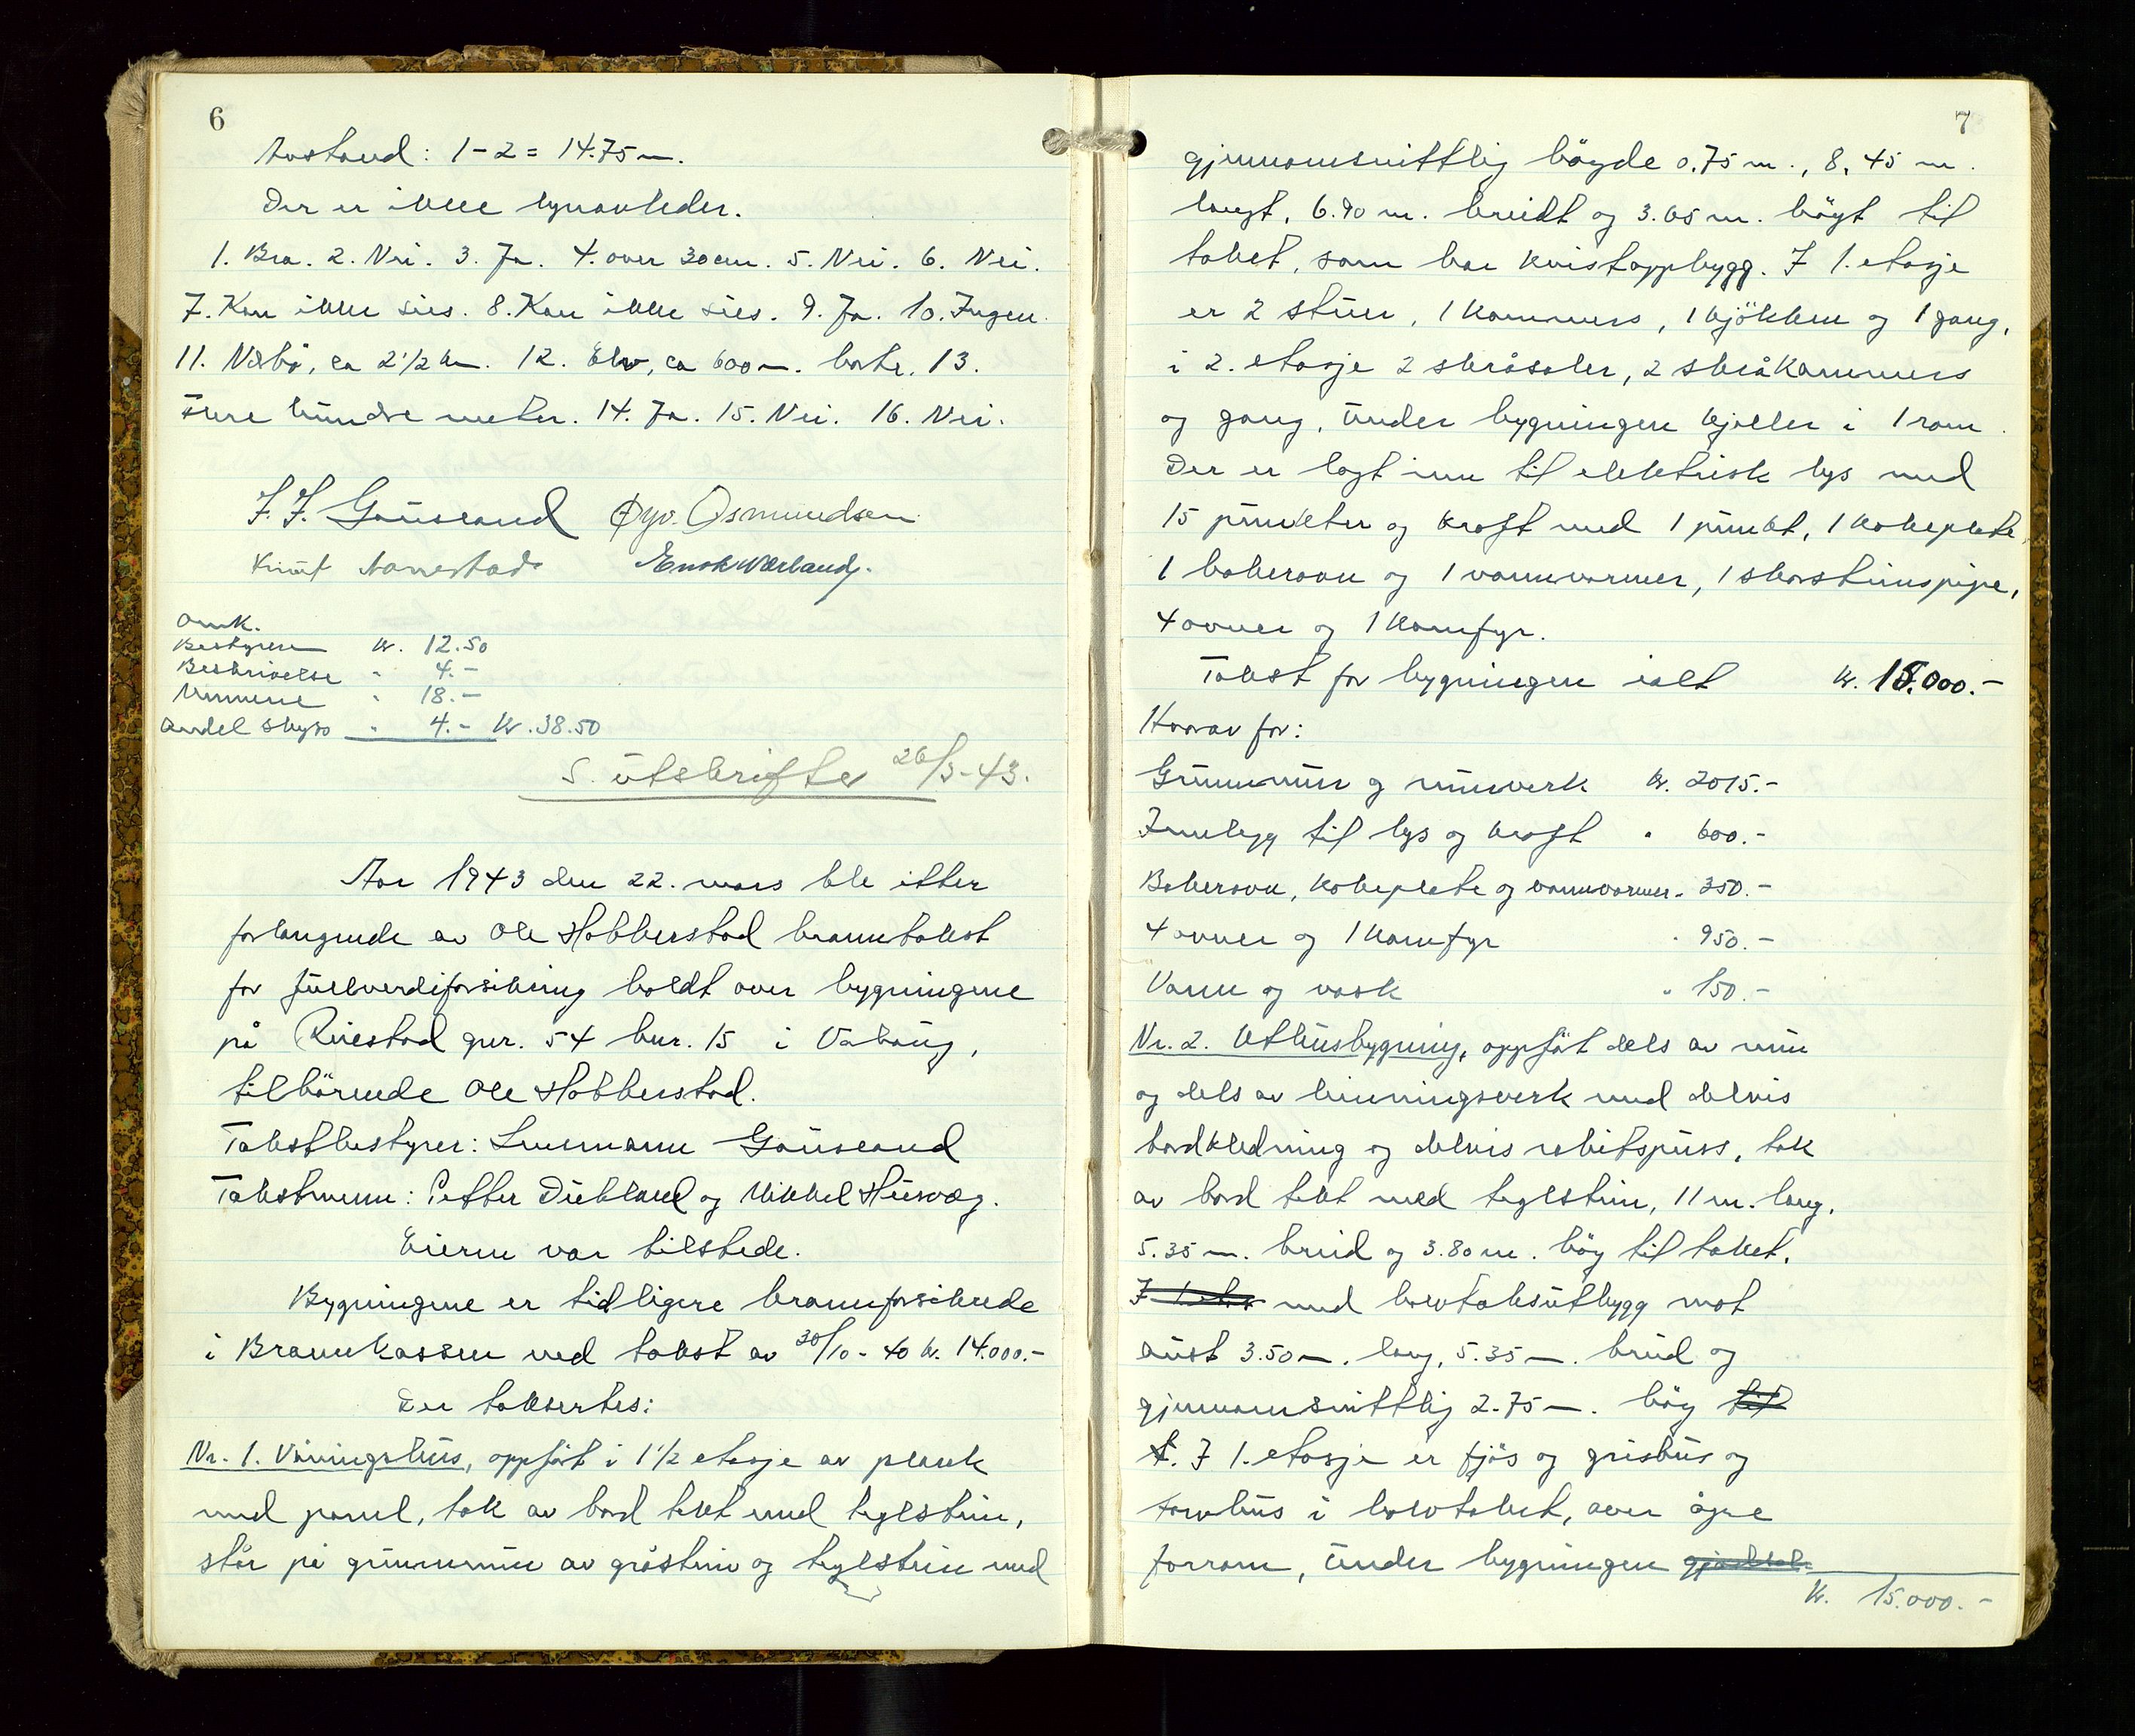 6
Avstand: 1-2 = 14.75 m.
Der er ikke lynavleder.
1. Bra. 2. Nei. 3. Ja. 4. over 30 cm. 5. Nei. 6. Nei.
7. Kan ikke sies. 8. Kan ikke sies. 9. Ja. 10. Ingen.
11. Nærbö, ca 2 1/2 km. 12. Elv, ca 600 m. borte. 13.
Flere hundre meter. 14. Ja. 15. Nei. 16. Nei.
J. J. Gausland Øyv. Osmundsen
Knut Aanestad Enok Nærland
Omk.
Bestyrere kr. 12.50
Beskrivelse " 4.-
Mennene " 18.-
Andel skyss " 4.- kr. 38.50
S. utskrifter 26/3-43.
Aar 1943 den 22. mars ble etter
forlangende av Ole Hobberstad branntakst
for fullverdiforsikring holdt over bygningene
på Ruestad gnr. 54 bnr. 15 i Varhaug,
tilhörende Ole Hobberstad.
Takstbestyrer: Lensmann Gausland
Takstmenn: Petter Dubland og Mikkel Husvæg.
Eieren var tilstede.
Bygningene er tidligere brannforsikrede
i Brannkassen ved takst av 30/10-40 kr. 14.000.-
Der taksertes:
Nr. 1. Våningshus, oppfört i 1 1/2 etasje av plank
med panel, tak av bord tekt med teglstein,
står på grunnmur av gråstein og teglstein med
7
gjennomsnittlig höyde 0.75 m., 8.45 m.
langt, 6.90 m. breidt og 3.65 m. höyt til
taket, som har kvistoppbygg. I 1. etasje
er 2 stuer, 1 kammers, 1 kjökken og 1 gang,
i 2. etasje 2 skråsaler, 2 skråkammers
og gang, under bygningen kjeller i 1 rom.
Der er lagt inn til elektrisk lys med
15 punkter og kraft med 1 punkt, 1 kokeplate,
1 bakerovn og 1 vannvarmer, 1 skorsteinspipe,
4 ovner og 1 komfyr.
Takst for bygningen ialt kr. 15.000.-
Hvorav for:
Grunnmur og murverk kr. 2015.-
Innlegg til lys og kraft " 600.-
Bakerovn, kokeplate og vannvarmer " 350.-
4 ovner og 1 komfyr " 950.-
Vann og vask " 150.-
Nr. 2. Uthusbygning, oppfört dels av mur
og dels av binningsverk med delvis
bordkledning og delvis rabitspuss, tak
av bord tekt med teglstein, 11 m. lang,
5.35 m. breid og 3.80 m. höy til taket.
I 1. etas med halvtaksutbygg mot
aust 3.50 m. lang, 5.35 m. breid og
gjennomsnittlig 2.75 m. höy til
t. I 1. etasje er fjös og grishus og
torvhus i halvtaket, over åpne
forrom, under bygningen gjödsel-
kr. 15.000.-